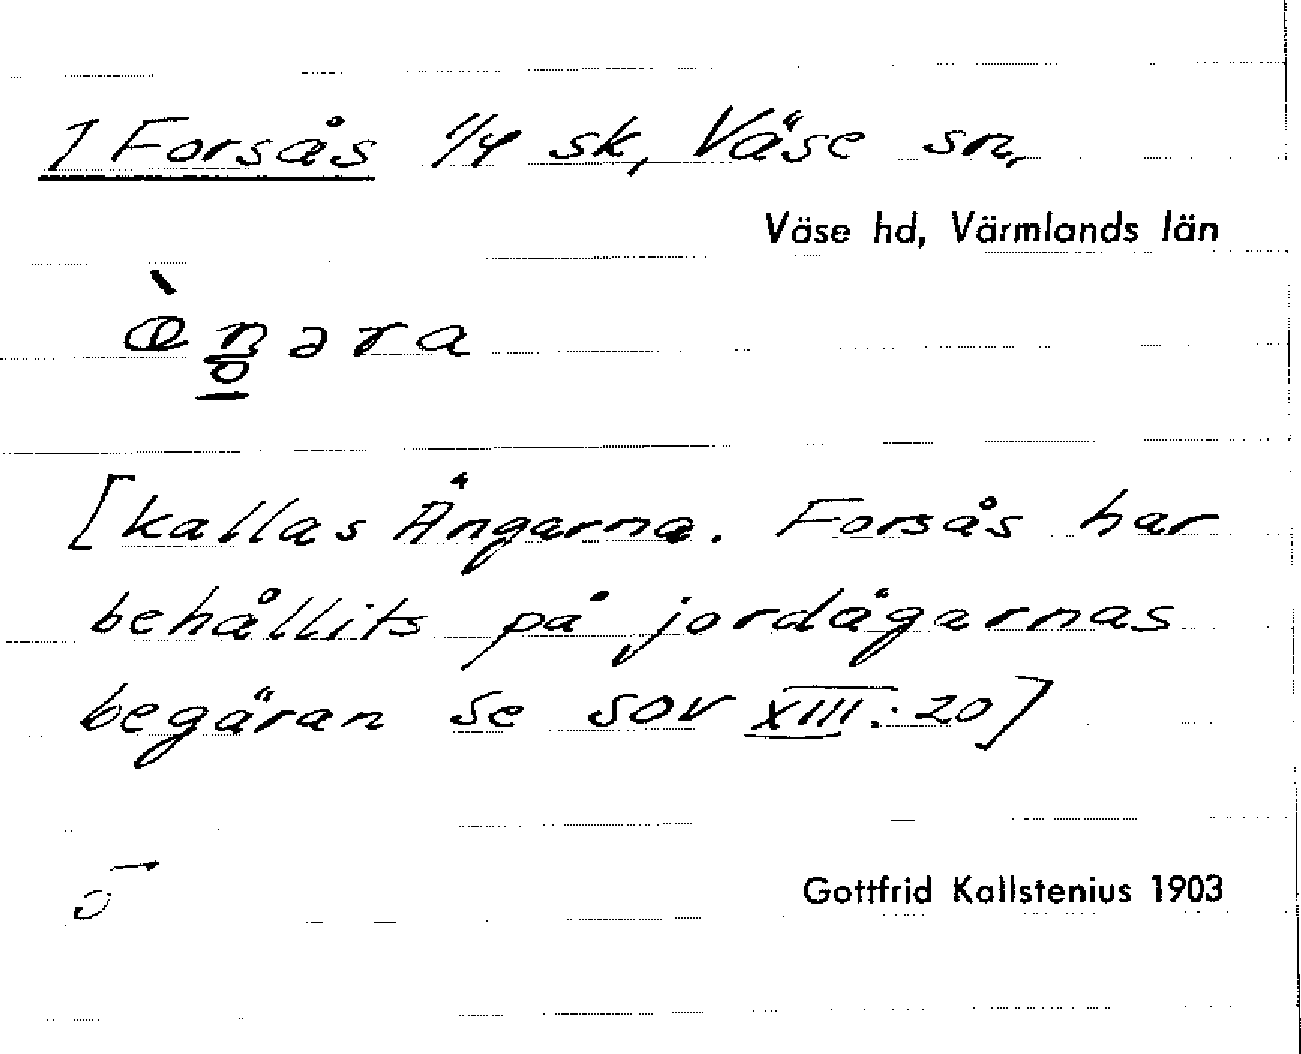 1 Forsås 1/4 sk, Väse sn,
Väse hd, Värmlands län
[kallas Ängarna. Forsås har
behållits på jordägarnas
begäran se SOV XIII: 20]
5
Gottfrid Kallstenius 1903